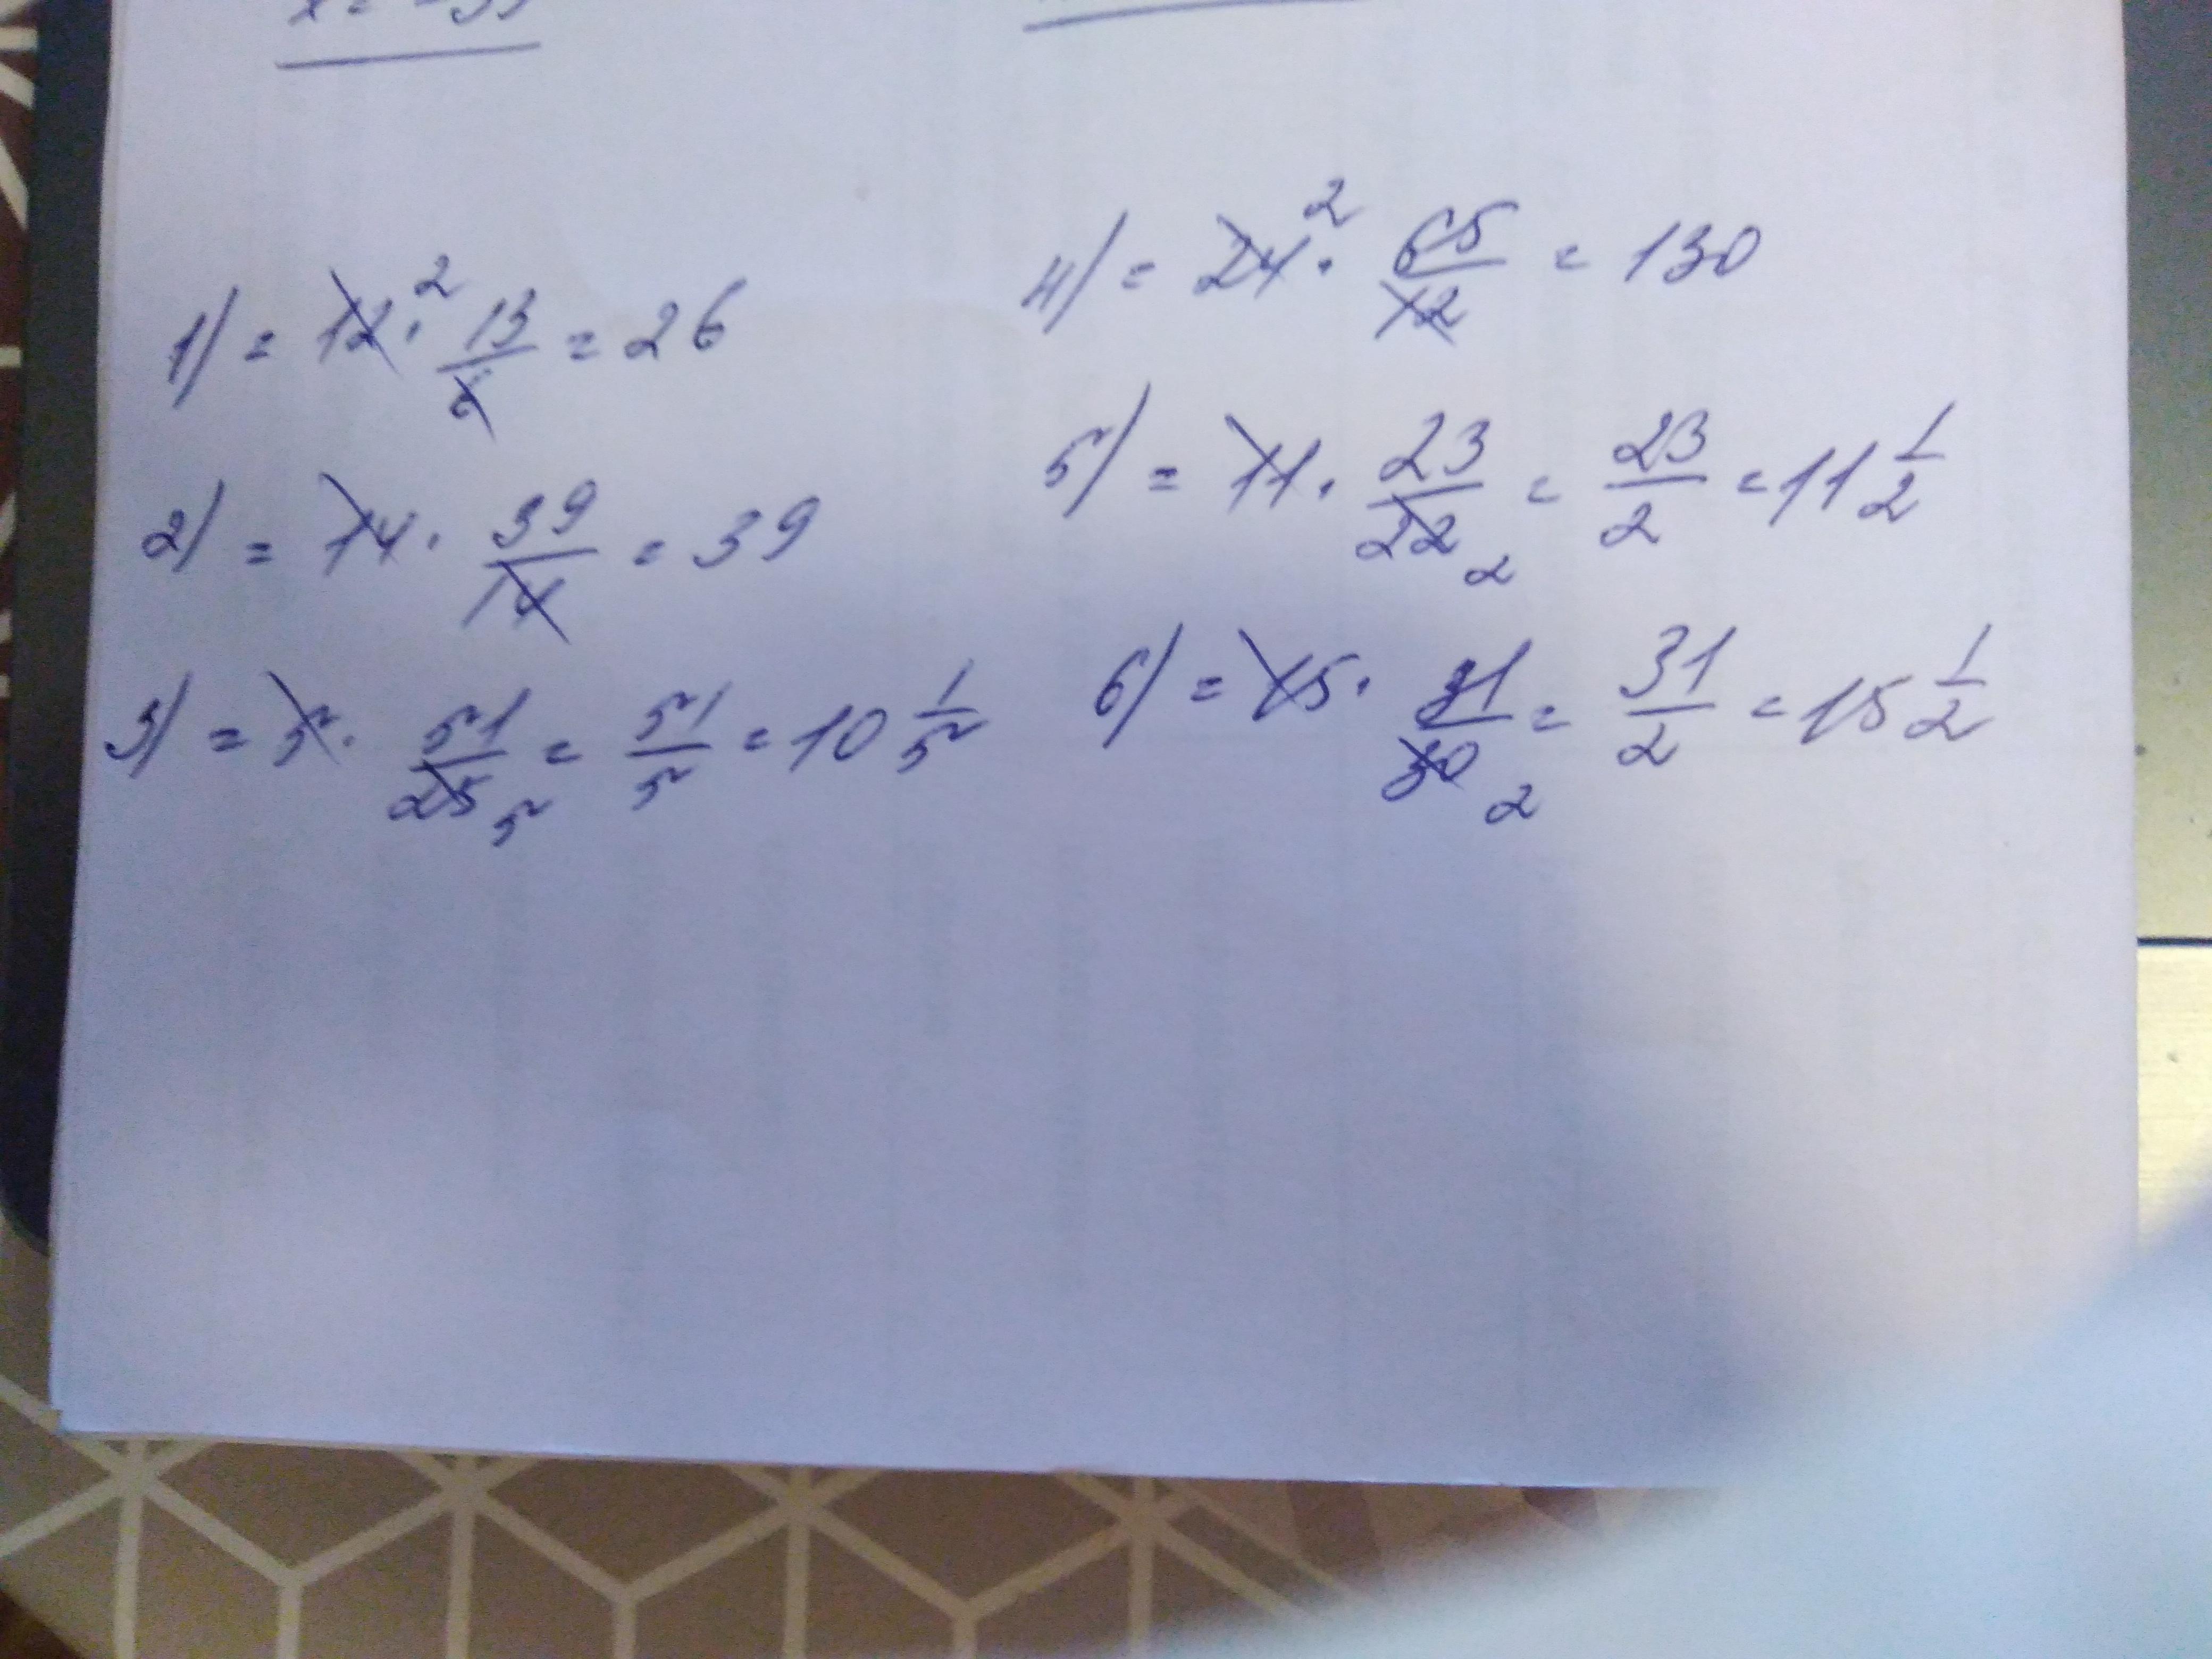 1) = 12 · 2 13/6 = 26
2) = 14 · 39/14 = 39
3) = 5 · 51/25 5 = 51/5 = 10 1/5
4) = 24 2 · 65/12 = 130
5) = 11 · 23/22 2 = 23/2 = 11 1/2
6) = 15 · 31/30 2 = 31/2 = 15 1/2